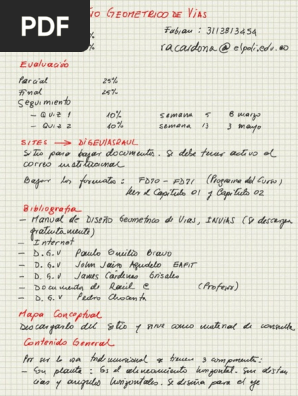 PDF
GEOMETRICO DE VIAS
Fabian: 3113813454
racardona@elpoli.edu.co
Evaluación
Parcial 25%
Final 25%
Seguimiento
- QUIZ 1 10% semana 5 8 marzo
- Quiz 2 10% semana 13 3 mayo
SITES → DIGEVIASRAUL
Sitio para bajar documentos. Se debe tener activo el
correo institucional
Bajar los formatos: FD70 - FD71 (Programa del Curso)
Leer el Capitulo 01 y Capitulo 02
Bibliografia
- Manual de DISEÑO Geometrico de Vias, INVIAS (Se descarga
gratuitamente)
- Internet
- D.G.V Paulo Emilio Bravo
- D.G.V John Jairo Agudelo EAFIT
- D.G.V James Cardenas Grisales
- Documento de Raul C (Profesor)
- D.G.V Pedro Chocontá
Mapa Conceptual
Descargarlo del Sitio y sirve como material de consulta
Contenido General
Por ser la via tridimensional se tienen 3 componentes:
- En planta: Es el alineamiento horizontal. Son distan
cias y angulos horizontales. Se diseña para el eje